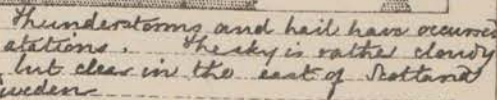 Thunderstorms and hail have occurred
stations. The sky is rather cloudy
but clear in the east of Scotland
weden